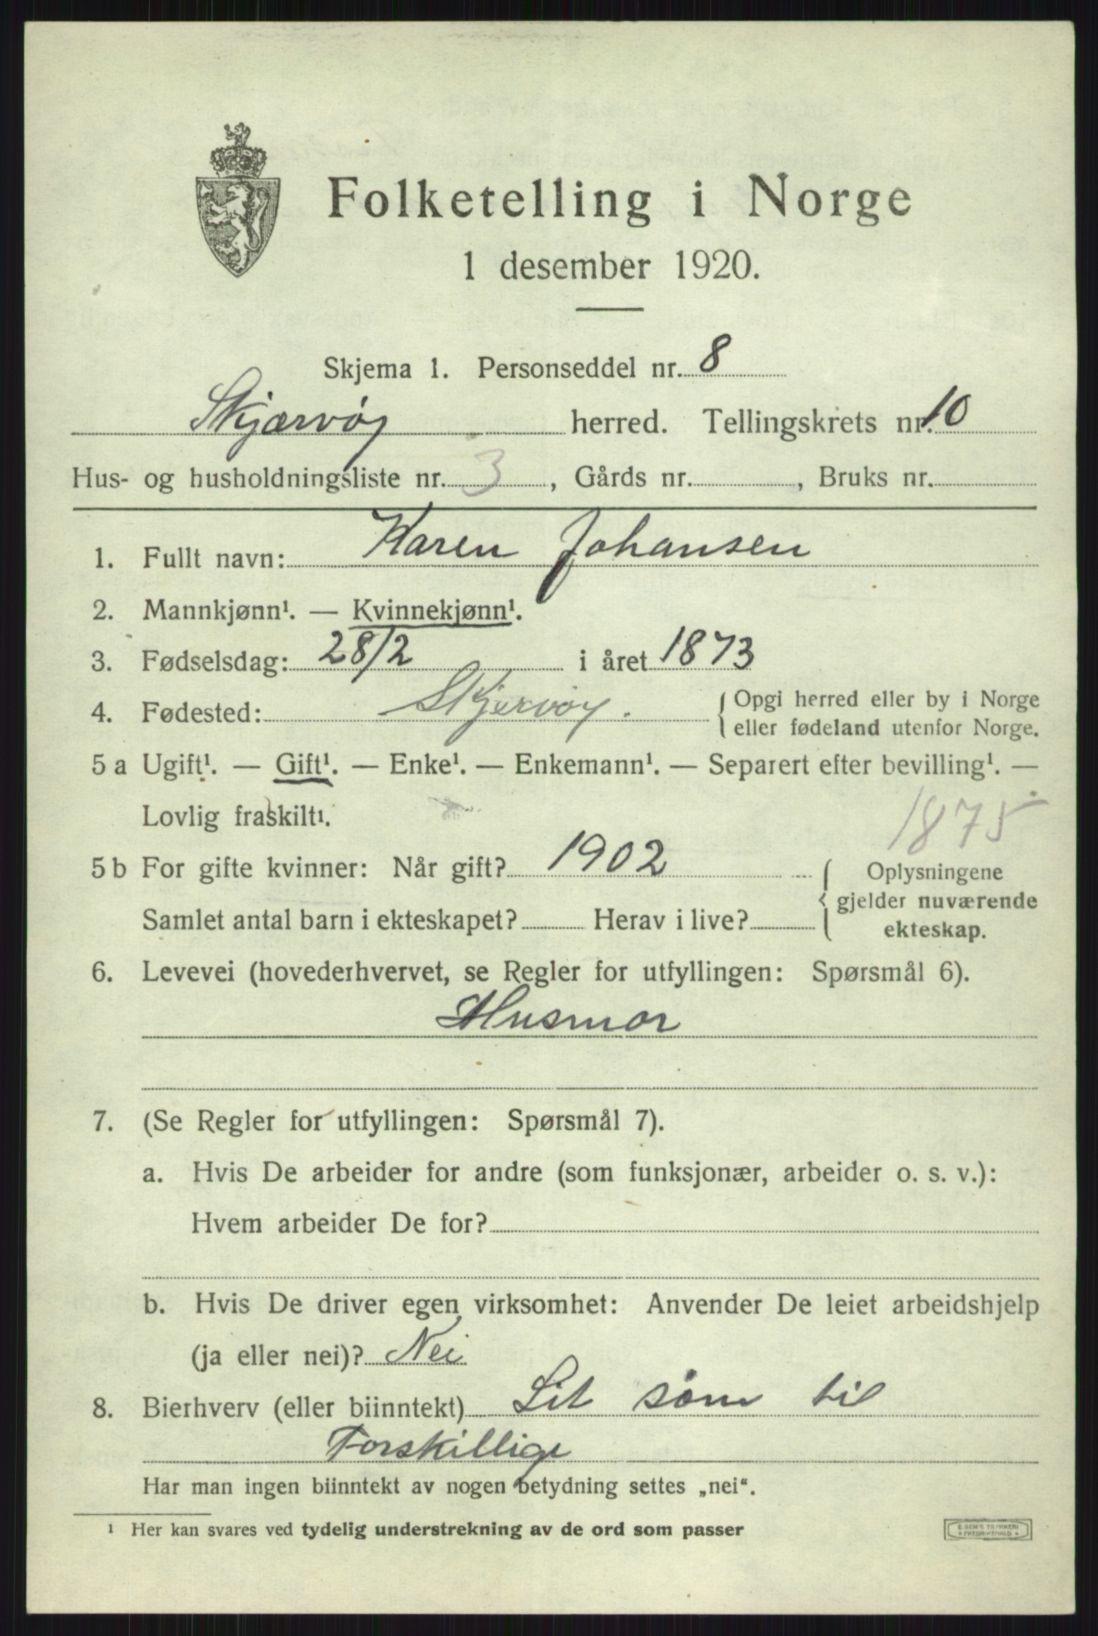 Folketelling i Norge
1 desember 1920.
Skjema 1. Personseddel nr. 8
Skjærvøy herred. Tellingskrets nr. 10
Hus- og husholdningsliste nr. 3, Gårds nr. , Bruks nr.
1. Fullt navn: Karen Johansen
2. Mannkjønn¹. — Kvinnekjønn¹.
3. Fødselsdag: 28/2 i året 1873
4. Fødested: Skjervøy. { Opgi herred eller by i Norge
eller fødeland utenfor Norge.
5 a Ugift¹. — Gift¹. — Enke¹. — Enkemann¹. — Separert efter bevilling¹. —
Lovlig fraskilt¹.
1875
5 b For gifte kvinner: Når gift? 1902 { Oplysningene
gjelder nuværende
ekteskap.
Samlet antal barn i ekteskapet? Herav i live?
6. Levevei (hovederhvervet, se Regler for utfyllingen: Spørsmål 6).
Husmor
7. (Se Regler for utfyllingen: Spørsmål 7).
a. Hvis De arbeider for andre (som funksjonær, arbeider o. s. v.):
Hvem arbeider De for?
b. Hvis De driver egen virksomhet: Anvender De leiet arbeidshjelp
(ja eller nei)? Nei
8. Bierhverv (eller biinntekt) Lit søm til
Forskillige
Har man ingen biinntekt av nogen betydning settes „nei“.
¹ Her kan svares ved tydelig understrekning av de ord som passer